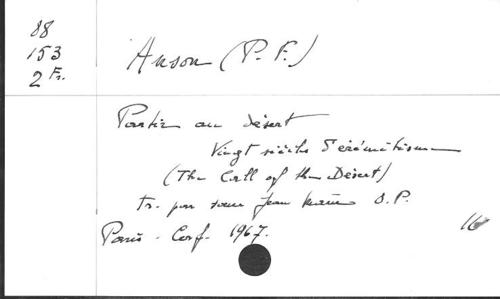 88
153
2 Fr.
Anson (P. F.)
Partir au désert
Vingt siècles d'érémitisme
(The Call of the Désert)
tr. par soeur Jean Marie O.P.
Paris - Cerf - 1967.
16